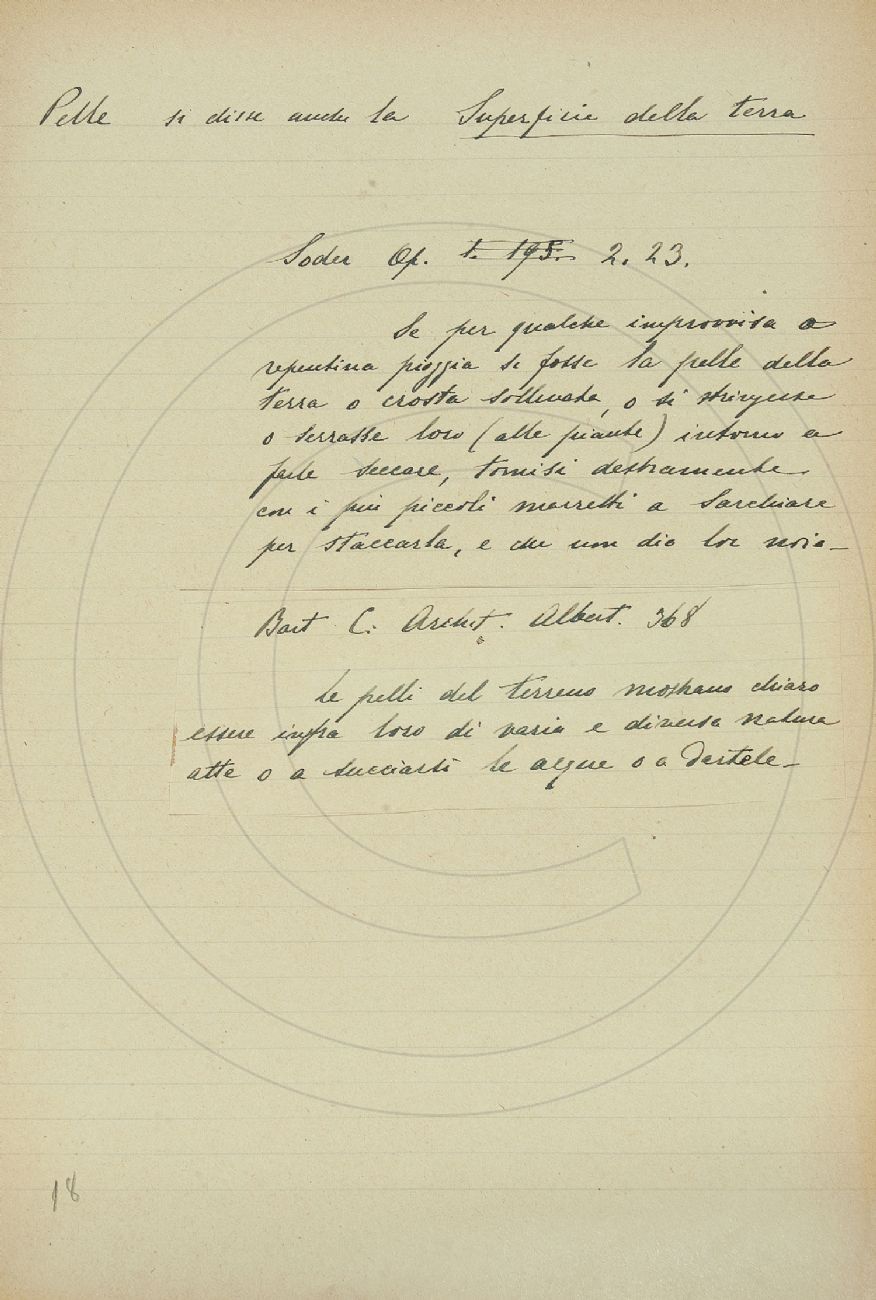 Pelle si disse anche la Superficie della terra
Soder Op. 1. 195. 2. 23.
Se per qualche improvvisa o
repentina pioggia si fosse la pelle della
terra o crosta sollevata, o si stringesse
o serrasse loro (alle piante) intorno a
farle seccare, tornisi destramente
con i più piccoli marretti a sarchiare
per staccarla, e che non dia lor noia_
Bart C. Archit. Albert. 368
Le pelli del terreno mostrano chiaro
essere infra loro di varia e diversa natura
atte o a succiarsi le acque o a
18